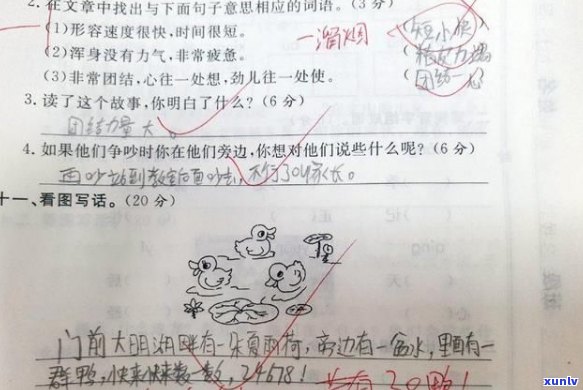 2.在文章中找出与下面句子意思相应的词语。(3分)
(1)形容速度很快,时间很短。 一溜烟 (短小快)
(2)浑身没有力气,非常疲惫。 (精疲力竭)
(3)非常团结,心往一处想,劲儿往一处使。 (团结一心)
3.读了这个故事,你明白了什么?(6分)
团结力量大。
4.如果他们争吵时你在他们旁边,你想对他们说些什么呢?(6分)
再吵站到教室后面吵去,不行了叫家长。
十一、看图写话。(20分)
门前大明湖畔有一朵夏雨荷,旁边有一盆水,里面有一
群鸭,快来快来数一数,24678!
xunlv